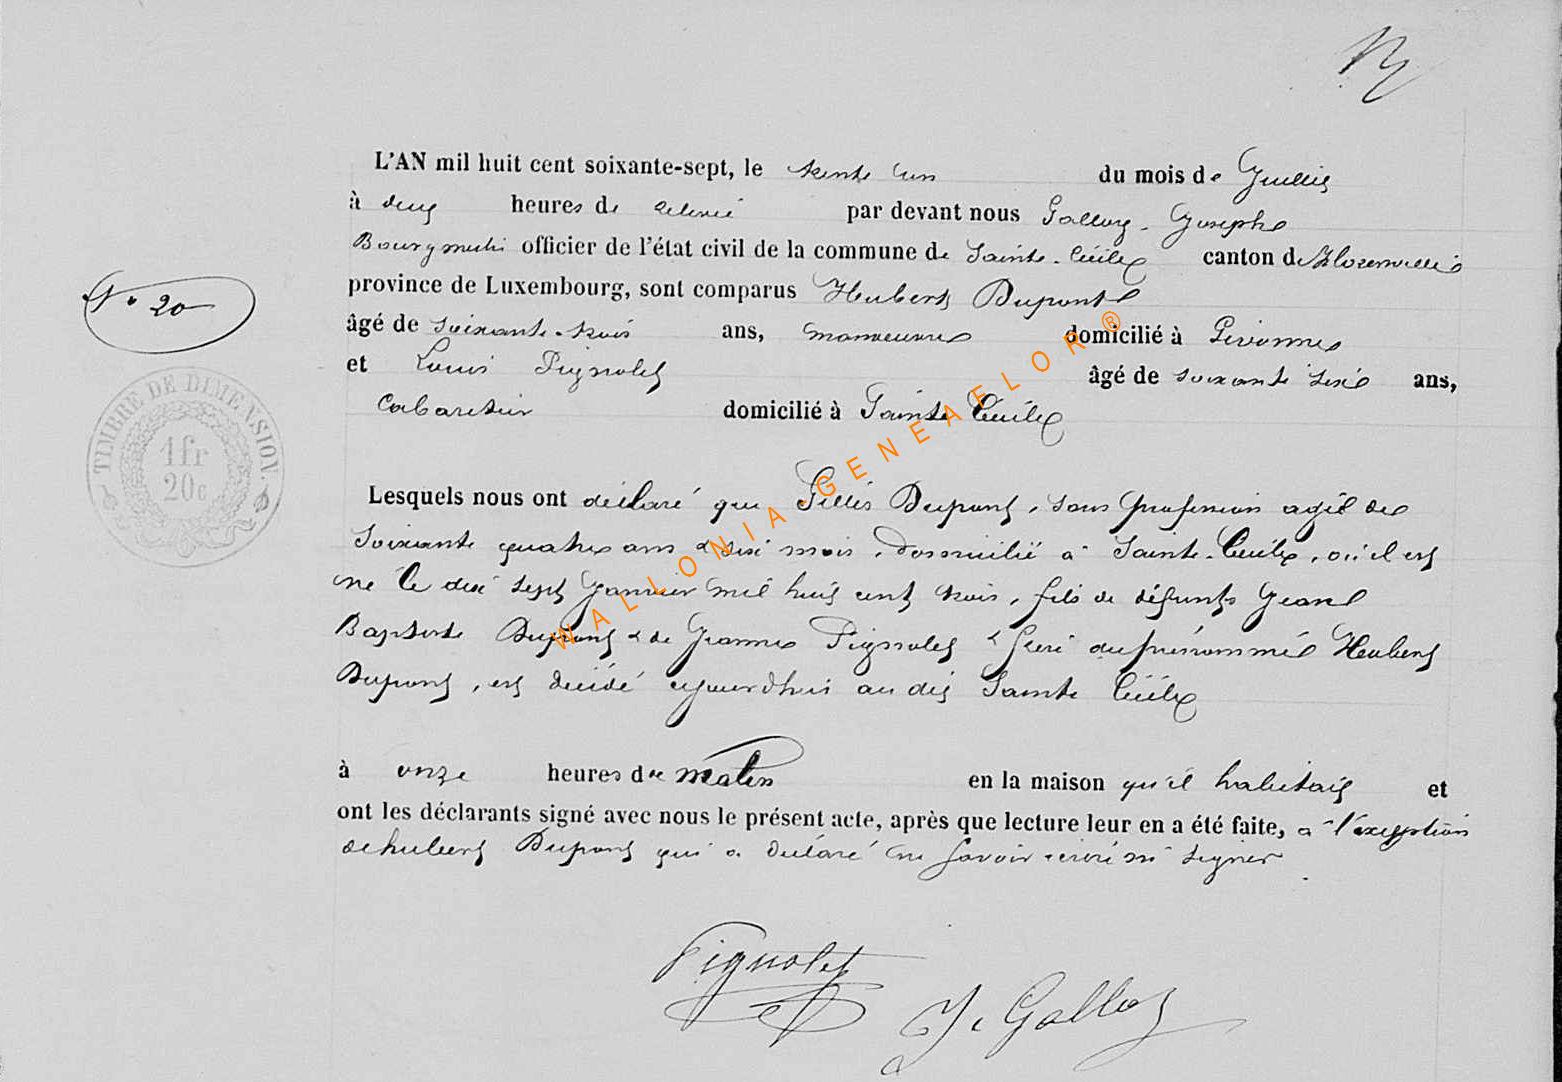 L'AN mil huit cent soixante-sept, le trente un du mois de Juillet
à deux heures de relevé par devant nous Golloy Josephe
Bourgmestre officier de l'état civil de la commune de Sainte-Cécile canton de Florenville
province de Luxembourg, sont comparus Hubert Dupont
N° 20
âgé de soixante-trois ans, manoeuvre domicilié à
et Louis Pignolet âgé de soixante six ans,
TIMBRE DE DIMENSION.
1fr
20c
Cabaretier domicilié à Sainte Cécile
Lesquels nous ont déclaré que Gilles Dupont, sans profession agé de
soixante quatre ans & six mois, domicilié à Sainte-Cécile, où il est
né le dix sept Janvier mil huit cent trois, fils de défunts Jean
Baptiste Dupont & de Jeanne Pignolet & frère du prénommé Hubert
Dupont, est décédé aujourd'hui au dit Sainte Cécile
à onze heures du matin en la maison qu'il habitait et
ont les déclarants signé avec nous le présent acte, après que lecture leur en a été faite, à l'exception
de hubert Dupont qui a déclaré ne savoir écrire ni signer
Pignolet
J. Golloy
WALLONIA-GENEAFLOR®